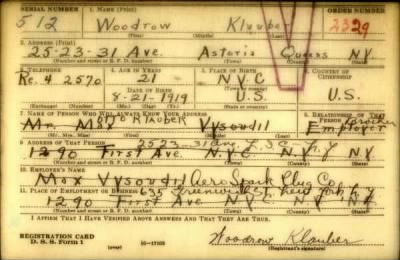 SERIAL NUMBER 1. NAME (Print) ORDER NUMBER
512 Woodrow Klauber 2329
2. ADDRESS (Print)
25-23-31 Ave. Astoria Queens N.Y.
(Number and street or R. F. D. number) (Town) (County) (State)
3. TELEPHONE 4. AGE IN YEARS 5. PLACE OF BIRTH 6. COUNTRY OF CITIZENSHIP
Re. 4 2570 21 N.Y.C
DATE OF BIRTH (Town or county)
8-21-1919 U.S. U.S.
(Exchange) (Number) (Mo.) (Day) (Yr.) (State or country)
7. NAME OF PERSON WHO WILL ALWAYS KNOW YOUR ADDRESS 8. RELATIONSHIP OF THAT PERSON
Klauber
Mr. Max Vysoudil Employer
(Mr., Mrs., Miss) (First) (Middle) (Last)
9. ADDRESS OF THAT PERSON 2523 31 Ave. L.I.C. N.Y
1290 First Ave. N.Y.C. N.Y. N.Y.
(Number and street or R. F. D. number) (Town) (County) (State)
10. EMPLOYER'S NAME
Max Vysoudil Aero Spark Plug Co
11. PLACE OF EMPLOYMENT OR BUSINESS 635 Greenwich St. New York N.Y
1290 First Ave N.Y.C. N.Y. N.Y.
(Number and street or R. F. D. number) (Town) (County) (State)
I AFFIRM THAT I HAVE VERIFIED ABOVE ANSWERS AND THAT THEY ARE TRUE.
REGISTRATION CARD
D. S. S. Form 1 Woodrow Klauber
(Registrant's signature)